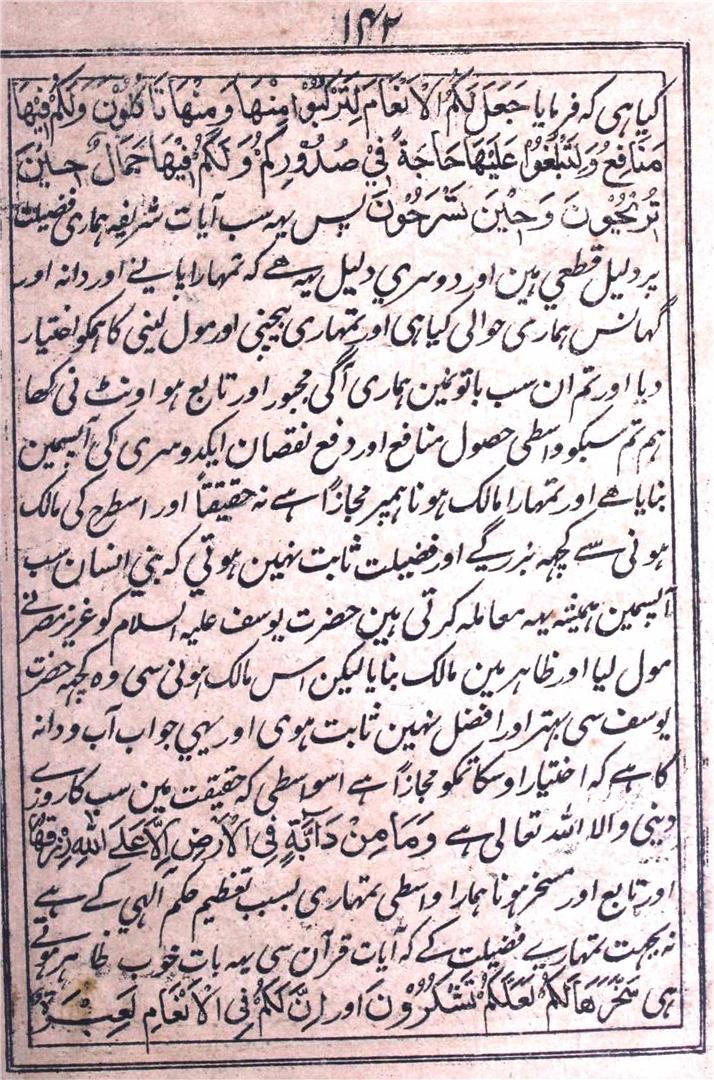 ۱۴۲
کیا ہی کہ فرمایا جَعَلَ لَکُمُ الْاَنْعَامَ لِتَرْکَبُوْا مِنْهَا وَمِنْهَا تَاْکُلُوْنَ وَلَکُمْ فِیْهَا
مَنَافِعُ وَلِتَبْلُغُوْا عَلَیْهَا حَاجَةً فِیْ صُدُوْرِکُمْ وَلَکُمْ فِیْهَا جَمَالٌ حِیْنَ
تُرِیْحُوْنَ وَحِیْنَ تَسْرَحُوْنَ پس یہہ سب آیات شریفہ ہماری فضیلت
پر دلیل قطعی ہین اور دوسری دلیل یہ ھے کہ تمہارا پانے اور دانہ اور
گہانس ہماری حوالی کیا ہی اور تمہاری بیچنی اور مول لینی کا ہمکو اختیار
دیا اور تم ان سب باتونمین ہماری آگی مجبور اور تابع ہو اونٹ نی کھا
ہم تم سبکو واسطی حصول منافع اور دفع نقصان ایکدوسری کی آپسمین
بنایا ھے اور تمہارا مالک ہونا ہمپر مجازاً ہے نہ حقیقتاً اور اسطرح کی مالک
ہونی سے کچہہ بزرگے اور فضیلت ثابت نہین ہوتی کہ بنی انسان سب
آپسمین ہمیشہ یہہ معاملہ کرتی ہین حضرت یوسف علیہ السلام کو عزیز مصر نے
مول لیا اور ظاہر مین مالک بنایا لیکن اس مالک ہونی سی وہ کچہہ حضرت
یوسف سی بہتر اور افضل نہین ثابت ہوی اور یہی جواب آب و دانہ
کا ہے کہ اختیار اوسکا تمکو مجازاً ہے اسواسطی کہ حقیقت مین سب کا روزے
دینی والا اللہ تعالی ہے وَمَا مِنْ دَابَّةٍ فِی الْاَرْضِ اِلَّا عَلَے اللهِ رِزْقُهَا
اور تابع اور مسخر ہونا ہمارا واسطی تمہاری بسبب تعظیم حکم الٰہی کے ہے
نہ بجہت تمہارے فضیلت کے کہ آیات قرآن سی یہہ بات خوب ظاہر ہوتے
ہی سَخَّرْهَا لَکُمْ لَعَلَّکُمْ تَشْکُرُوْنَ اور اِنَّ لَکُمْ فِی الْاَنْعَامِ لَعِبْرَةً